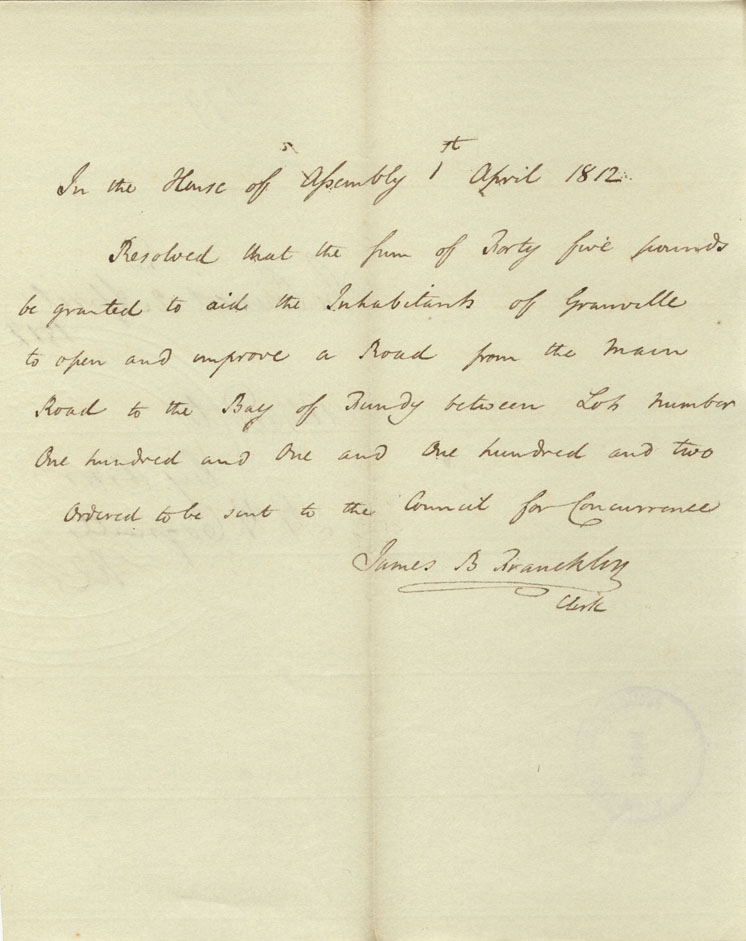 In the House of Assembly 1st April 1812
Resolved that the sum of Forty five pounds
be granted to aid the Inhabitants of Granville
to open and improve a Road from the Main
Road to the Bay of Fundy between Lots number
One hundred and One and One hundred and two
Ordered to be sent to the Council for Concurrence
James B Franchlyn
Clerk